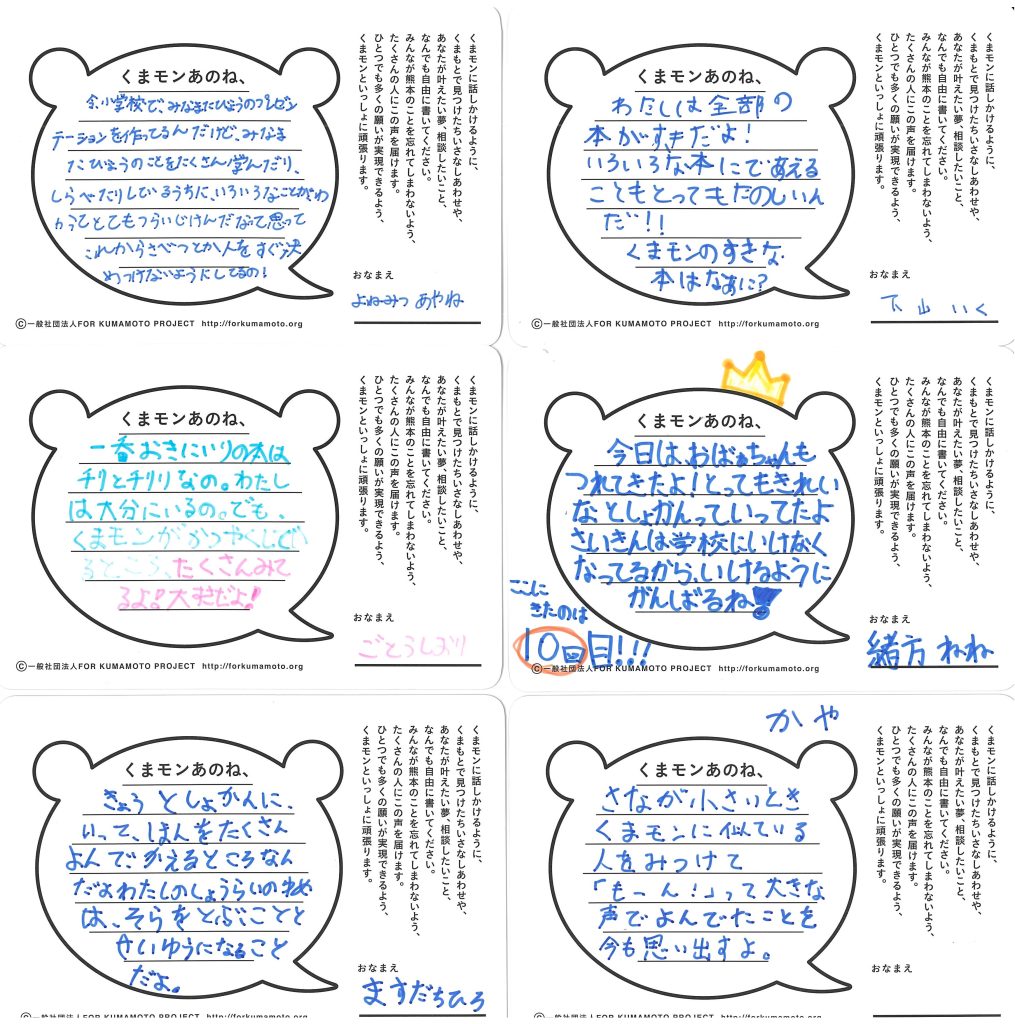 くまモンあのね、
今小学校でみなまたびょうのプレゼン
テーションを作ってるんだけど、みなま
たびょうのことをたくさん学んだり、
しらべたりしているうちに、いろいろなことがわ
かってとてもつらいじけんだなって思って
これからさべつとか人をすぐ決
めつけないようにしてるの!
くまモンに話しかけるように、
くまもとで見つけたちいさなしあわせや、
あなたが叶えたい夢、相談したいこと、
なんでも自由に書いてください。
みんなが熊本のことを忘れてしまわないよう、
たくさんの人にこの声を届けます。
ひとつでも多くの願いが実現できるよう、
くまモンといっしょに頑張ります。
おなまえ
よねみつ あやね
©一般社団法人FOR KUMAMOTO PROJECT http://forkumamoto.org
くまモンあのね、
わたしは全部の
本がすきだよ!
いろいろな本にであえる
こともとってもたのしいん
だ!!
くまモンのすきな
本はなぁに?
くまモンに話しかけるように、
くまもとで見つけたちいさなしあわせや、
あなたが叶えたい夢、相談したいこと、
なんでも自由に書いてください。
みんなが熊本のことを忘れてしまわないよう、
たくさんの人にこの声を届けます。
ひとつでも多くの願いが実現できるよう、
くまモンといっしょに頑張ります。
おなまえ
下山 いく
©一般社団法人FOR KUMAMOTO PROJECT http://forkumamoto.org
くまモンあのね、
一番おきにいりの本は
チリとチリリなの。わたし
は大分にいるの。でも、
くまモンが
たくさんみて
るよ!大好だよ!
くまモンに話しかけるように、
くまもとで見つけたちいさなしあわせや、
あなたが叶えたい夢、相談したいこと、
なんでも自由に書いてください。
みんなが熊本のことを忘れてしまわないよう、
たくさんの人にこの声を届けます。
ひとつでも多くの願いが実現できるよう、
くまモンといっしょに頑張ります。
おなまえ
ごとうしおり
©一般社団法人FOR KUMAMOTO PROJECT http://forkumamoto.org
くまモンあのね、
今日は、おばぁちゃんも
つれてきたよ!とってもきれい
なとしょかんっていってたよ
さいきんは学校にいけなく
なってるから、いけるように
がんばるね!!
ここに
きたのは
10回目!!!
くまモンに話しかけるように、
くまもとで見つけたちいさなしあわせや、
あなたが叶えたい夢、相談したいこと、
なんでも自由に書いてください。
みんなが熊本のことを忘れてしまわないよう、
たくさんの人にこの声を届けます。
ひとつでも多くの願いが実現できるよう、
くまモンといっしょに頑張ります。
おなまえ
緒方 ねね
©一般社団法人FOR KUMAMOTO PROJECT http://forkumamoto.org
くまモンあのね、
きょうとしょかんに、
いって、ほんをたくさん
よんでかえるところなん
だよわたしのしょうらいのゆめ
は、そらをとぶことと
せいゆうになること
だよ。
くまモンに話しかけるように、
くまもとで見つけたちいさなしあわせや、
あなたが叶えたい夢、相談したいこと、
なんでも自由に書いてください。
みんなが熊本のことを忘れてしまわないよう、
たくさんの人にこの声を届けます。
ひとつでも多くの願いが実現できるよう、
くまモンといっしょに頑張ります。
おなまえ
ますだちひろ
©一般社団法人FOR KUMAMOTO PROJECT http://forkumamoto.org
かや
くまモンあのね、
さなが小さいとき
くまモンに似ている
人をみつけて
「もーん!」って大きな
声でよんでたことを
今も思い出すよ。
くまモンに話しかけるように、
くまもとで見つけたちいさなしあわせや、
あなたが叶えたい夢、相談したいこと、
なんでも自由に書いてください。
みんなが熊本のことを忘れてしまわないよう、
たくさんの人にこの声を届けます。
ひとつでも多くの願いが実現できるよう、
くまモンといっしょに頑張ります。
おなまえ
©一般社団法人FOR KUMAMOTO PROJECT http://forkumamoto.org